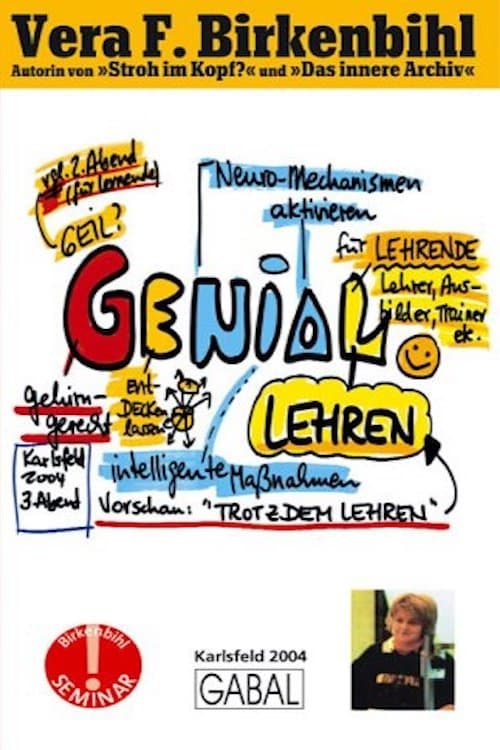 Vera F. Birkenbihl
Autorin von »Stroh im Kopf?« und »Das innere Archiv«
vgl. 2. Abend
(für Lernende)
GEIL?
Neuro-Mechanismen
aktivieren
für LEHRENDE
Lehrer, Aus-
bilder, Trainer
etc.
GENIAL
LEHREN
gehirn-
gerecht
Ent-
DECken
lassen
Karlsfeld
2004
3. Abend
intelligente Maßnahmen
Vorschau: "TROTZDEM LEHREN"
Birkenbihl
!
SEMINAR
Karlsfeld 2004
GABAL